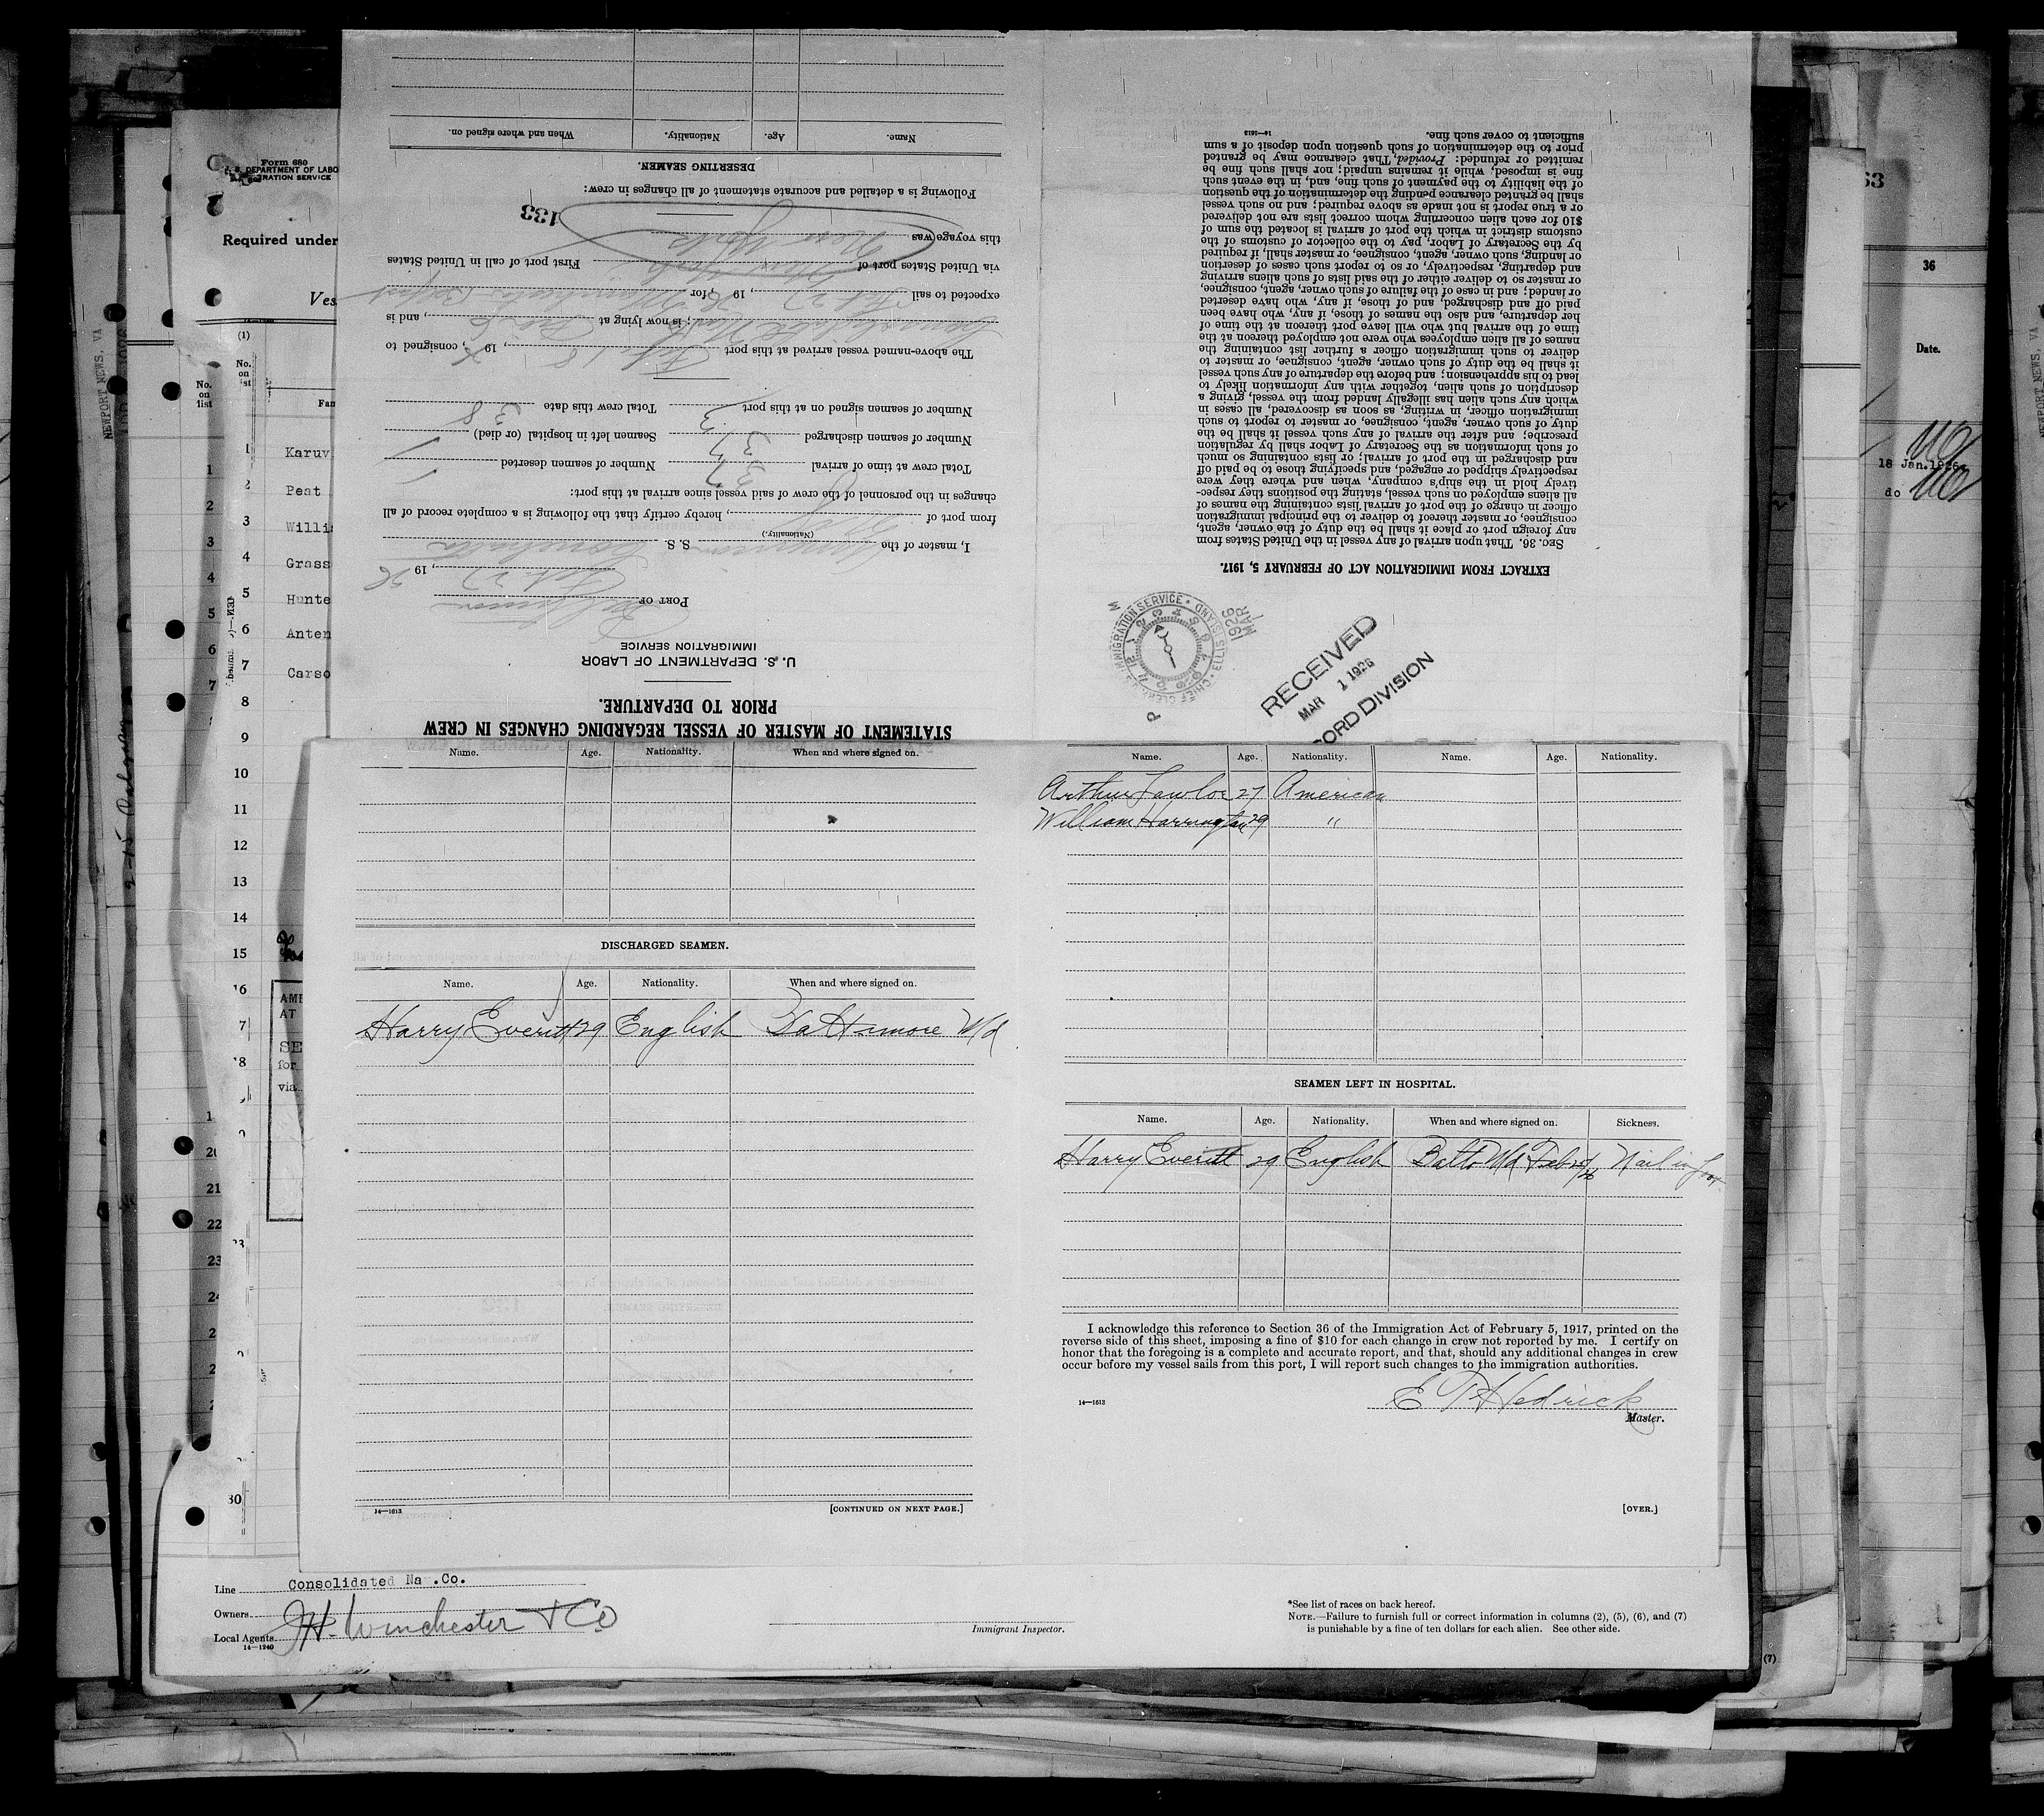 Form 680
U. S. DEPARTMENT OF LABO
RATION SERVICE
Required under
Ves
(1)
No. on list
No. on list
Fam
Karuv
Peat
Willi
Grass
Hunte
Anten
Carso
STATEMENT OF MASTER OF VESSEL REGARDING CHANGES IN CREW
PRIOR TO DEPARTURE.
U. S. DEPARTMENT OF LABOR
IMMIGRATION SERVICE
PORT OF Baltimore
Feb. 27, 19 26
I, master of the American S. S.
(Nationality.)
from port of, hereby certify that the following is a complete record of all
changes in the personnel of the crew of said vessel since arrival at this port:
Total crew at time of arrival 37 Number of seamen deserted
Number of seamen discharged 37 Seamen left in hospital (or died) 1
Number of seamen signed on at this port 2 Total crew this date 38
The above-named vessel arrived at this port Feb. 18, 19, consigned to
Consolidated Nav Co; is now lying at, and is
expected to sail Feb 27, 19, for Manchester Belfast
via United States port of New York First port of call in United States
this voyage was New York
133
Following is a detailed and accurate statement of all changes in crew:
DESERTING SEAMEN.
Name. Age. Nationality. When and where signed on.
EXTRACT FROM IMMIGRATION ACT OF FEBRUARY 5, 1917.
SEC. 36. That upon arrival of any vessel in the United States from
any foreign port or place it shall be the duty of the owner, agent,
consignee, or master thereof to deliver to the principal immigration
officer in charge of the port of arrival lists containing the names of
all aliens employed on such vessel, stating the positions they respec-
tively hold in the ship's company, when and where they were
respectively shipped or engaged, and specifying those to be paid off
and discharged in the port of arrival; or lists containing so much
of such information as the Secretary of Labor shall by regulation
prescribe; and after the arrival of any such vessel it shall be the
duty of such owner, agent, consignee, or master to report to such
immigration officer, in writing, as soon as discovered, all cases in
which any such alien has illegally landed from the vessel, giving a
description of such alien, together with any information likely to
lead to his apprehension; and before the departure of any such vessel
it shall be the duty of such owner, agent, consignee, or master to
deliver to such immigration officer a further list containing the
names of all alien employees who were not employed thereon at the
time of the arrival but who will leave port thereon at the time of
her departure, and also the names of those, if any, who have been
paid off and discharged, and of those, if any, who have deserted
or landed; and in case of the failure of such owner, agent, consignee,
or master so to deliver either of the said lists of such aliens arriving
and departing, respectively, or so to report such cases of desertion
or landing, such owner, agent, consignee, or master shall, if required
by the Secretary of Labor, pay to the collector of customs of the
customs district in which the port of arrival is located the sum of
$10 for each alien concerning whom correct lists are not delivered
or a true report is not made as above required; and no such vessel
shall be granted clearance pending the determination of the question
of the liability to the payment of such fine, and, in the event such
fine is imposed, while it remains unpaid; nor shall such fine be
remitted or refunded: Provided, That clearance may be granted
prior to the determination of such question upon deposit of a sum
sufficient to cover such fine.
14—1613
IMMIGRATION SERVICE ELLIS ISLAND
1926 MAR
RECEIVED
MAR 1 1926
CORD DIVISION
Name. Age. Nationality. When and where signed on.
DISCHARGED SEAMEN.
Name. Age. Nationality. When and where signed on.
Harry Everitt 29 English Baltimore Md
14—1613 [CONTINUED ON NEXT PAGE.]
Name. Age. Nationality. Name. Age. Nationality.
Arthur Lawlor 27 American
William Harrington 29 "
SEAMEN LEFT IN HOSPITAL.
Name. Age. Nationality. When and where signed on. Sickness.
Harry Everitt 29 English Balto Md Feb 25/26 Nail in foot
I acknowledge this reference to Section 36 of the Immigration Act of February 5, 1917, printed on the
reverse side of this sheet, imposing a fine of $10 for each change in crew not reported by me. I certify on
honor that the foregoing is a complete and accurate report, and that, should any additional changes in crew
occur before my vessel sails from this port, I will report such changes to the immigration authorities.
E T Hedrick
Master.
14—1613
[OVER.]
AME
AT
SE
for
via
Line Consolidated Na .Co.
Owners
Local Agents J.H. Winchester & Co
14—1240
Immigrant Inspector.
*See list of races on back hereof.
NOTE.—Failure to furnish full or correct information in columns (2), (5), (6), and (7)
is punishable by a fine of ten dollars for each alien. See other side.
(7)
63
36
Date.
18 Jan.1926
do
NEWPORT NEWS, VA